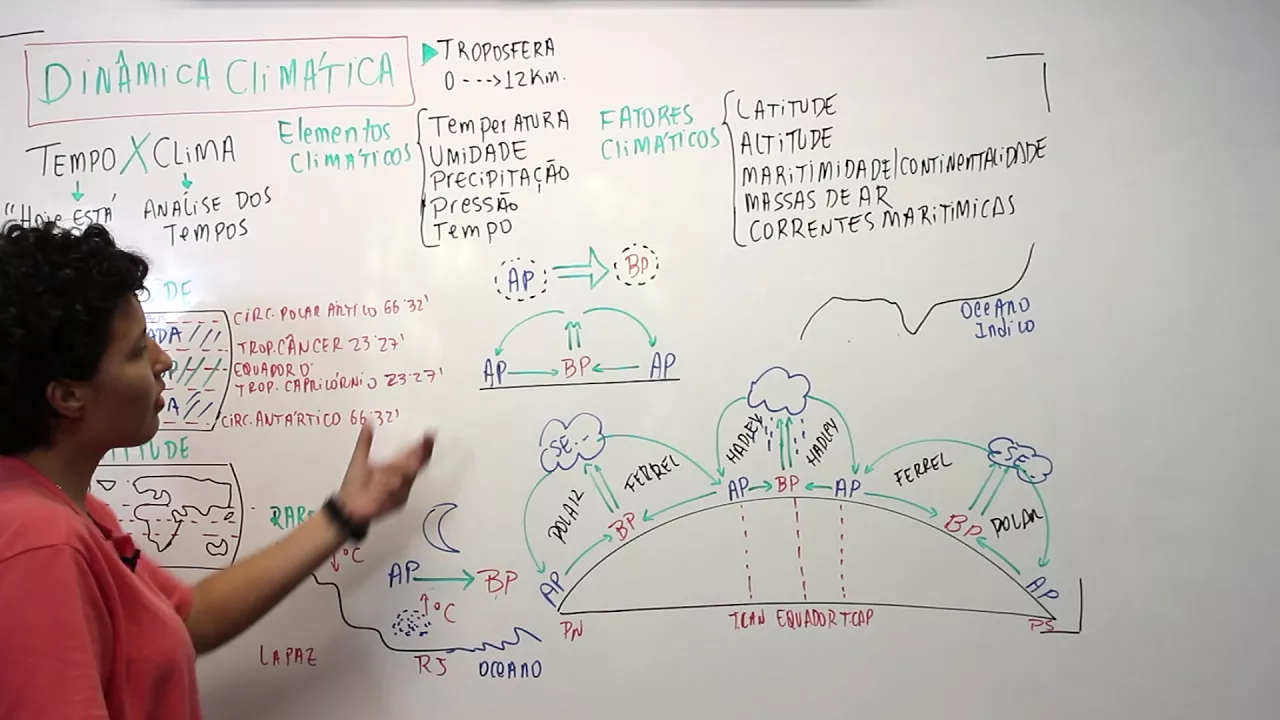 DINÂMICA CLIMÁTICA
TROPOSFERA
0 ---> 12 Km.
TEMPO X CLIMA
"HOJE ESTÁ
ANÁLISE DOS
TEMPOS
Elementos
CLIMÁTICOS
TEMPERATURA
UMIDADE
PRECIPITAÇÃO
PRESSÃO
TEMPO
FATORES
CLIMÁTICOS
LATITUDE
ALTITUDE
MARITIMIDADE/CONTINENTALIDADE
MASSAS DE AR
CORRENTES MARITIMICAS
DE
CIRC. POLAR ÁRTICO 66°32'
TROP. CÂNCER 23°27'
EQUADOR 0°
TROP. CAPRICÓRNIO 23°27'
CIRC. ANTÁRTICO 66°32'
ADA
P
A
TITUDE
RARE
↓°C
LA PAZ
AP BP
↑°C
RJ OCEANO
AP BP
AP BP AP
OCEANO
Indico
SE
POLAR FERREL
HADLEY HADLEY
FERREL POLAR
SE
AP BP AP BP AP BP AP
PN ICAN EQUADOR TCAP PS